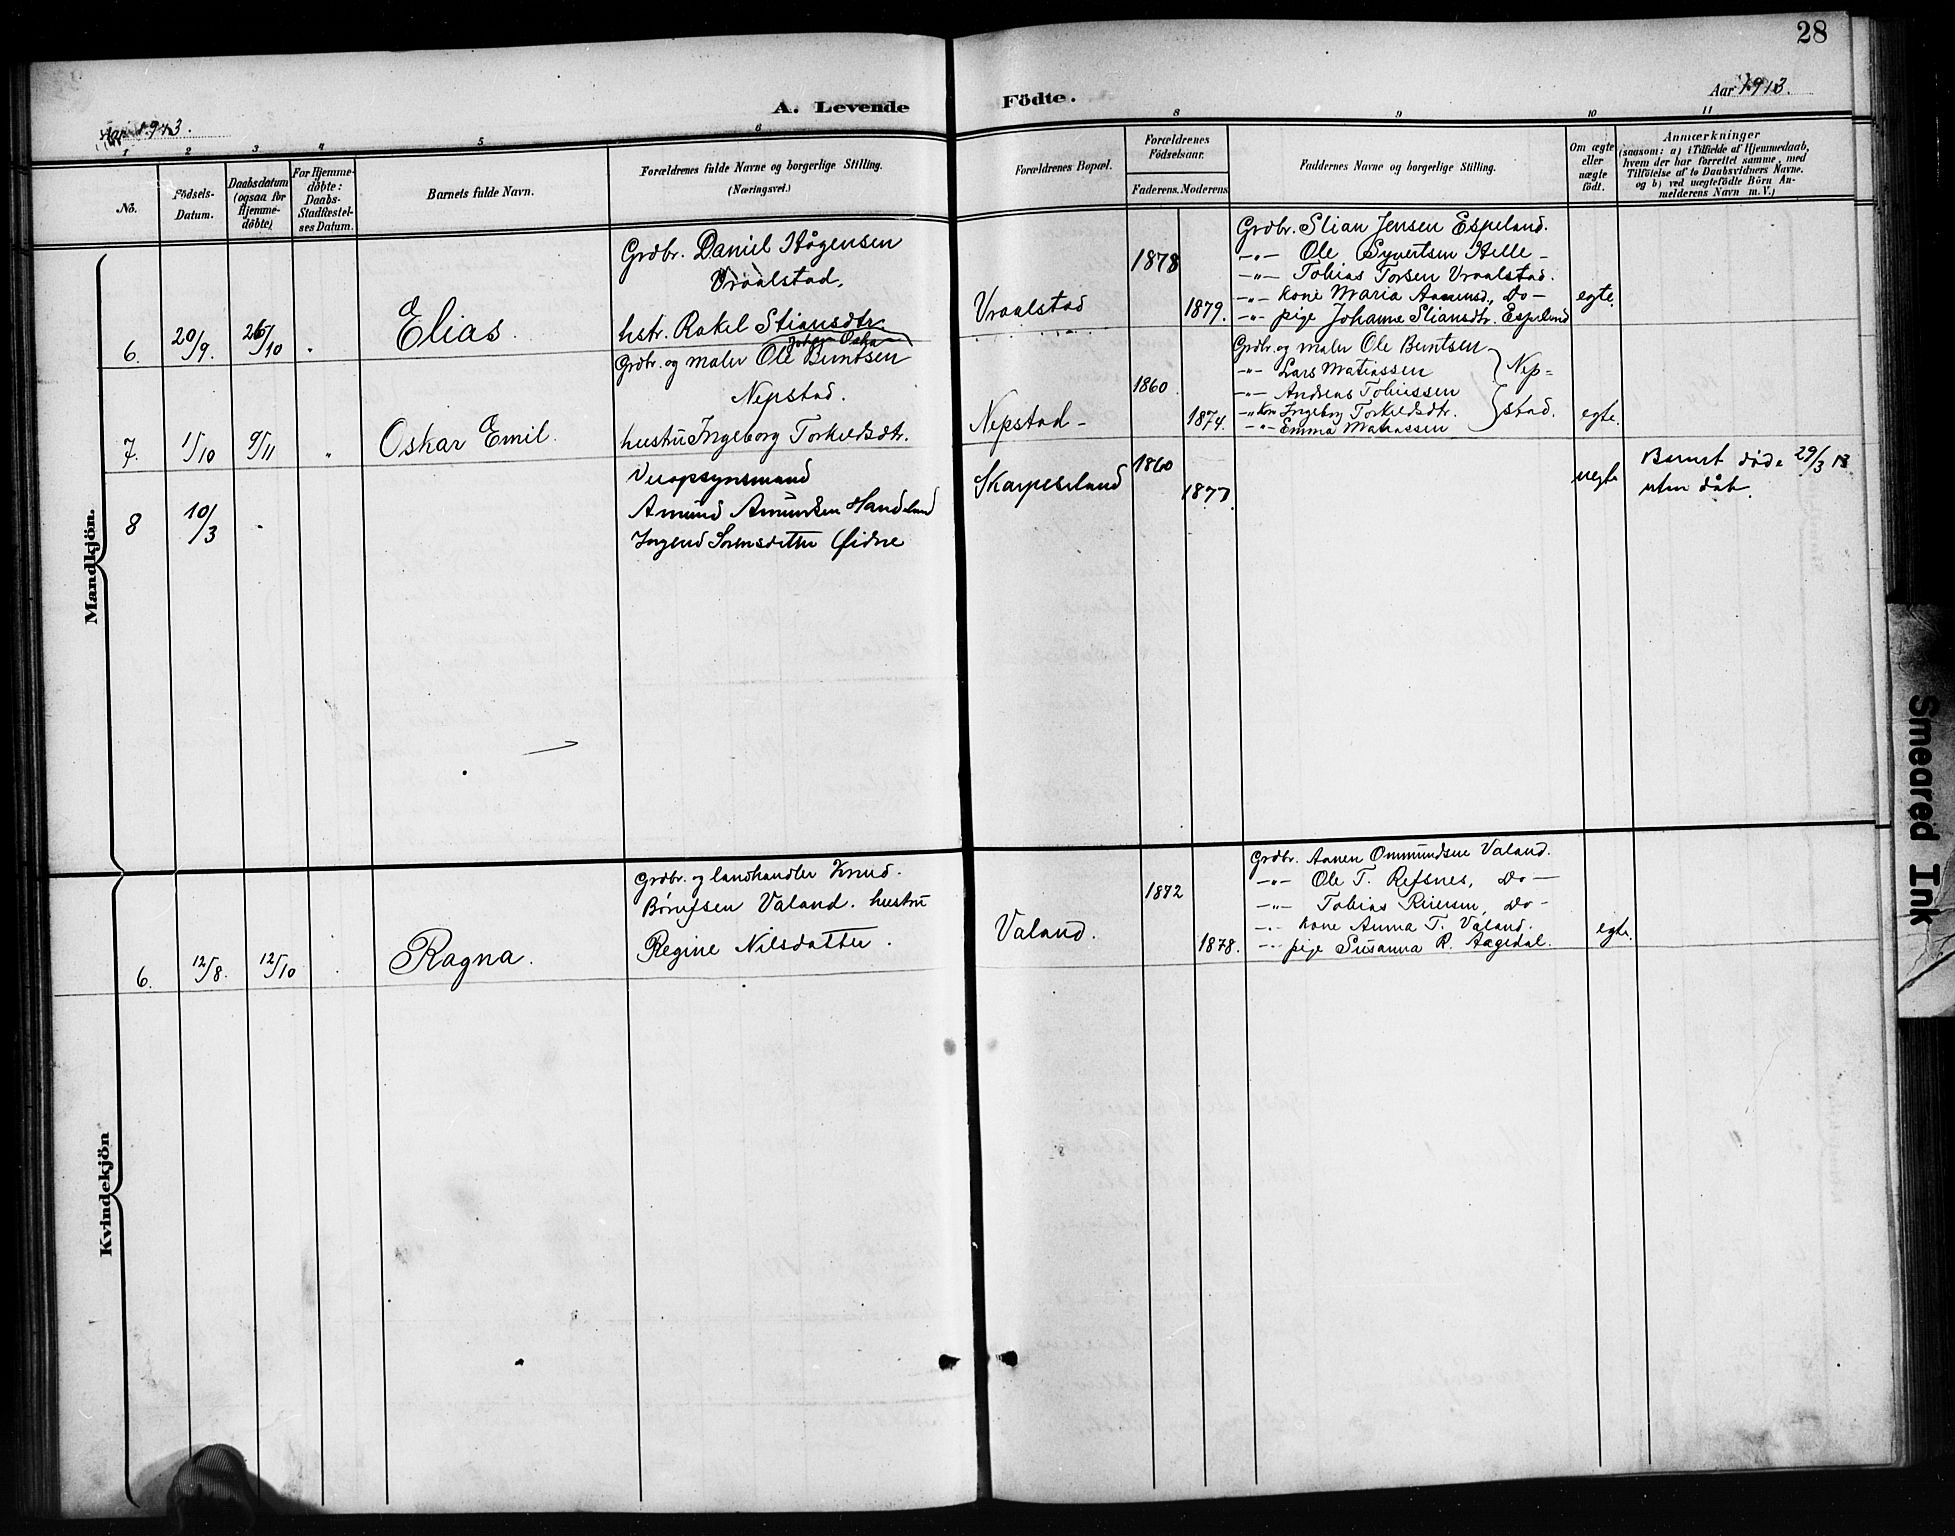 28
A. Levende Födte.
Aar 1913.
Aar 1913.
1 2 3 4 5 6 8 9 10 11
No.
Födsels-Datum.
Daabsdatum (ogsaa for Hjemme-döbte)
For Hjemme-döbte: Daabs-Stadfæstel-ses Datum.
Barnets fulde Navn.
Forældrenes fulde Navne og borgerlige Stilling.
(Næringsvei.)
Forældrenes Bopæl.
Forældrenes Födselsaar.
Faderens. Moderens.
Faddernes Navne og borgerlige Stilling.
Om ægte eller uægte födt.
Anmærkninger
(saasom: a) i Tilfælde af Hjemmedaab,
hvem der har forrettet samme, med
Tilföielse af to Daabsvidners Navne.
og b) ved uægtefödte Börn An-
melderens Navn m. V.)
Mandkjön.
6. 20/9. 26/10 " Elias.
Grdbr. Daniel Hågensen
Vraalstad.
hstr. Rakel Stiansdtr.
Vraalstad
1878
1879.
Grdbr. Stian Jensen Espeland.
-"- Ole Syvertsen Helle -
-"- Tobias Torsen Vraalstad.
-"- kone Maria Aanensd., Do -
-"- pige Johanne Stiansdtr. Espeland
egte.
7. 1/10 9/11 " Oskar Emil.
Grdbr. og maler Ole Berntsen
Nepstad.
hustru Ingeborg Torkildsdtr.
Nepstad -
1860
1874.
Grdbr. og maler Ole Berntsen
-"- Lars Matiassen
-"- Andreas Tobiassen
-"- kone Ingeborg Torkildsdtr.
-"- Emma Matiassen
Nep=
stad.
egte.
8 10/3 -
Veiopsynsmand
Amund Amundsen Handeland
Ingerd Sørensdatter Øidne
Skarpeseland
1860
1877.
uegte
Barnet døde 29/3 13
uten dåb.
Kvindekjön
6. 12/8. 12/10 . Ragna.
Grdbr. og landhandler Knud.
Børufsen Valand. hustru
Regine Nilsdatter.
Valand.
1872
1878.
Grdbr. Aanen Ommundsen Valand.
-"- Ole T. Refsnes, Do -
-"- Tobias Reiersen, Do -
-"- kone Anna T. Valand.
-"- pige Susanna R. Aagedal.
egte.
Smeared Ink